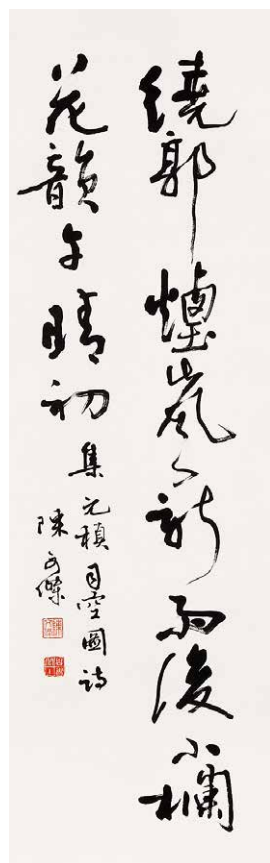 繞郭煙嵐新雨後小欄
花韻午晴初
集元稹司空圖詩
陳傑